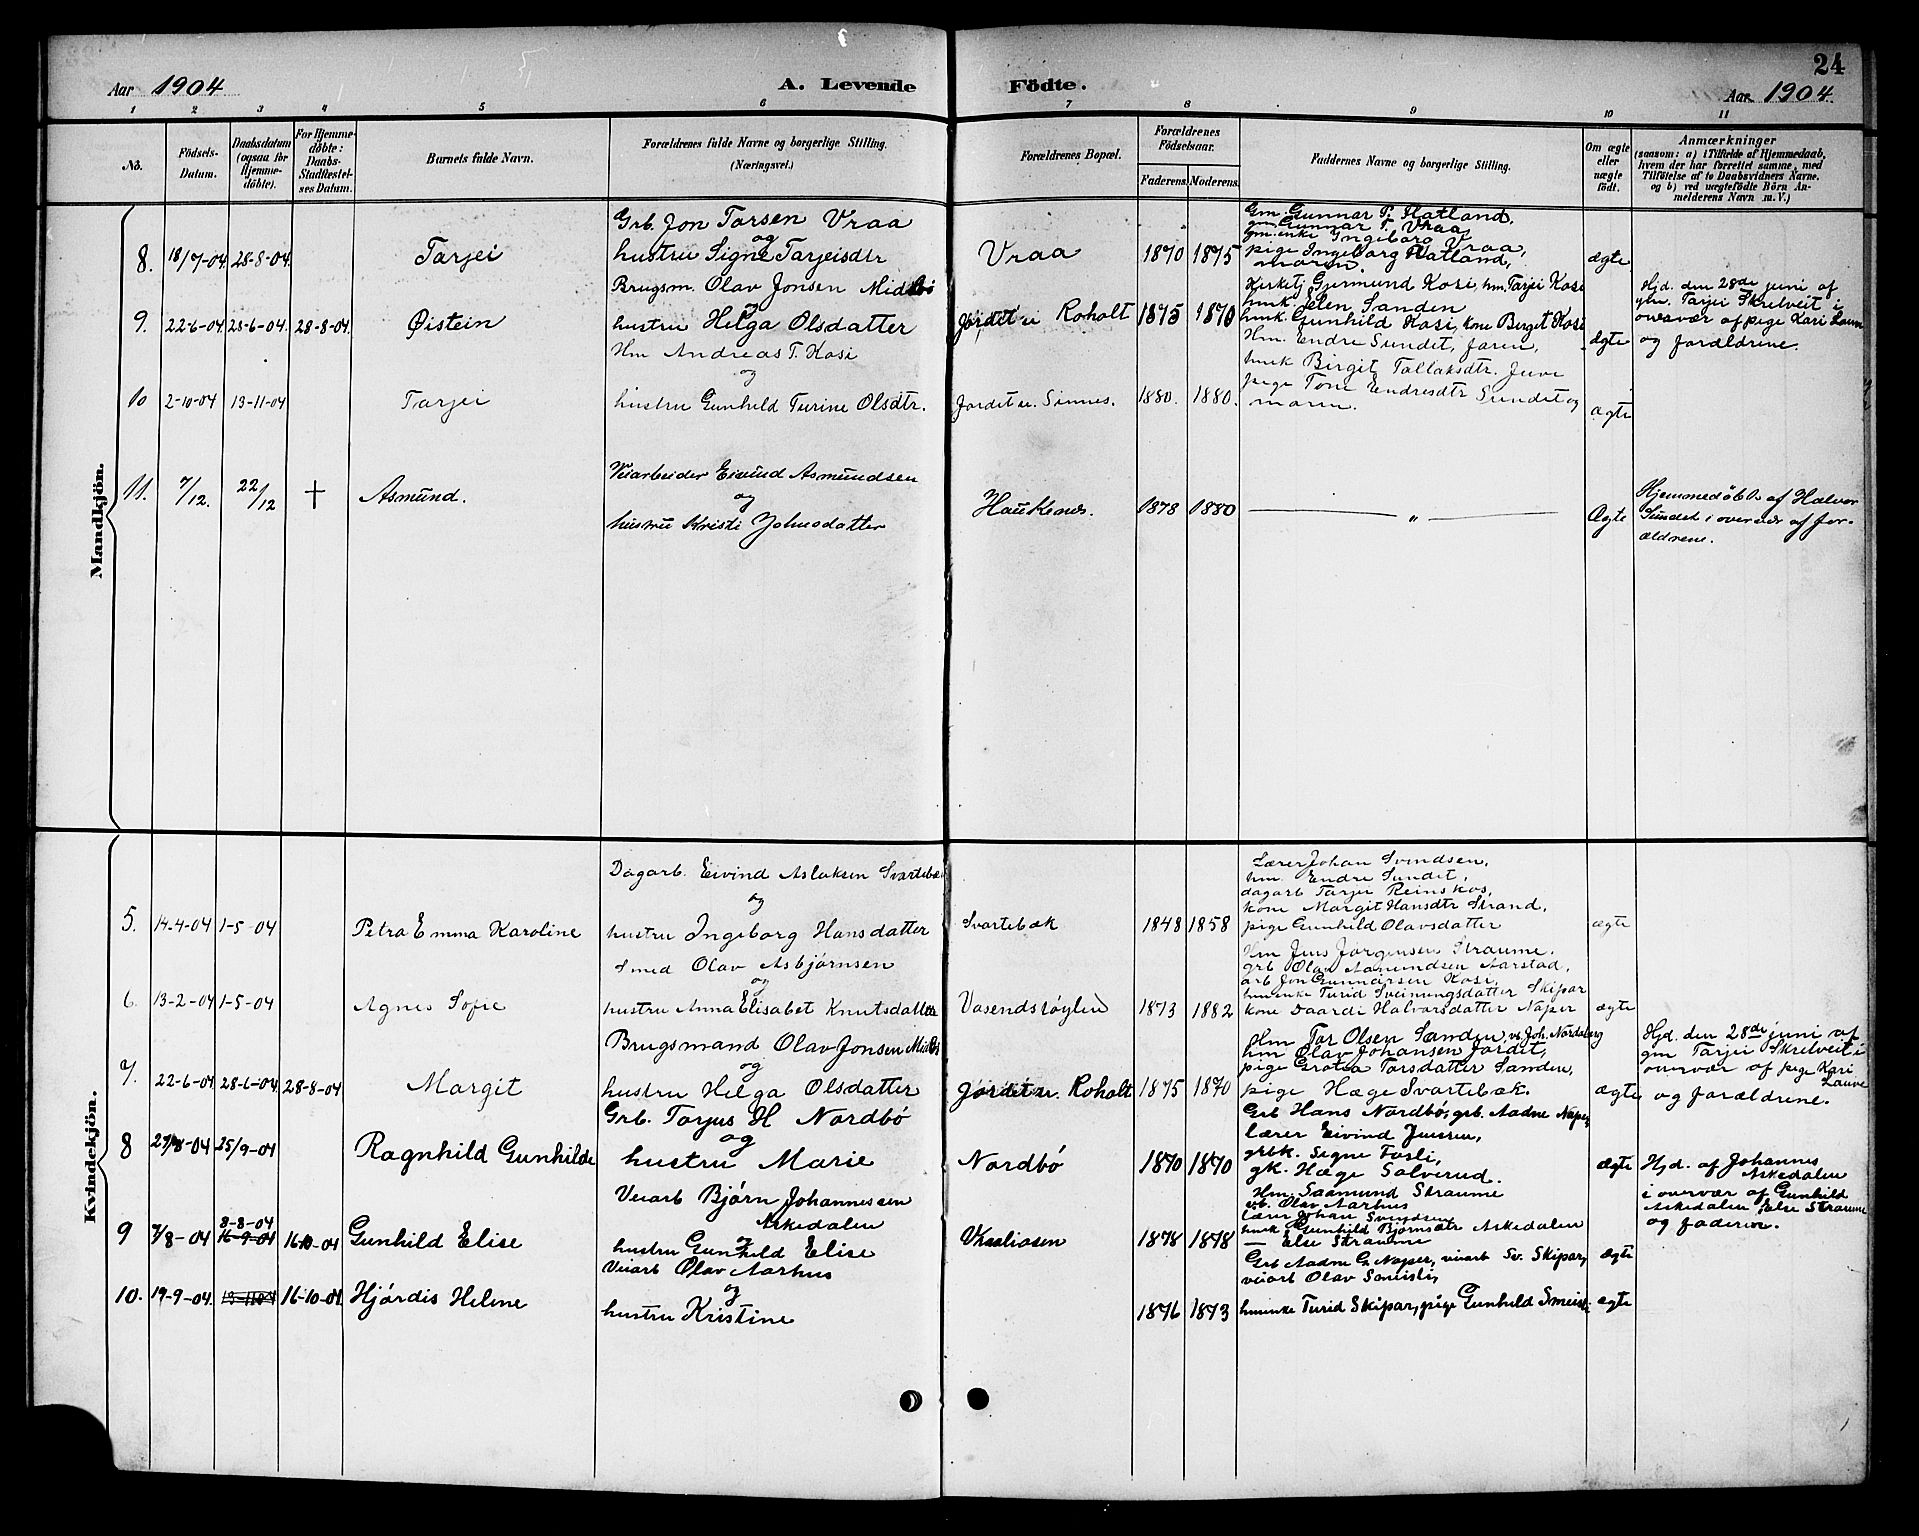 24
Aar 1904 A. Levende Födte. Aar 1904.
1 2 3 4 5 6 7 8 9 10 11
No. Födsels-Datum. Daabsdatum (ogsaa for Hjemme-döbte). For Hjemme-döbte: Daabs-Stadfæstel-ses Datum. Barnets fulde Navn. Forældrenes fulde Navne og borgerlige Stilling. (Næringsvei.) Forældrenes Bopæl. Forældrenes Födselsaar. Faderens. Moderens. Faddernes Navne og borgerlige Stilling. Om ægte eller uægte födt. Anmærkninger (saasom: a) i Tilfælde af Hjemmedaab, hvem der har forrettet samme, med Tilföielse af to Daabsvidners Navne. og b) ved uægtefödte Börn An-melderens Navn m. V.)
Mandkjön.
8. 18/7-04. 28-8-04. Tarjei
Grb. Jon Tarsen Vraa
og
hustru Signe Tarjeisdtr
Vraa 1870 1875
Gm. Gunnar P. Hatland,
gm. Gunnar T. Vraa,
gm. enke Ingeborg Vraa,
pige Ingeborg Hatland,
moren.
ægte
9. 22-6-04. 28-6-04. 28-8-04. Øistein
Brugsm. Olav Jonsen Midbö
og
hustru Helga Olsdatter
Jordet u. Roholt 1875 1870
Kirketj Gjermund Kosi, hm. Tarjei Kosi
hmk. Elen Sanden
hmk. Gunhild Kosi, kone Birget Kosi
ægte
Hjd. den 28de juni af
gm. Tarjei Skrelveit i
overvær af pige Kari Lauve
og forældrene.
10 2-10-04 13-11-04 Tarjei
Hm Andreas T. Kosi
og
hustru Gunhild Turine Olsdtr.
Jordet u. Sinnes. 1880. 1880.
Hm. Endre Sundet, Jaren,
hmk Birgit Tallaksdtr. Juve
pige Tone Endresdtr Sundet og
moren.
ægte
11. 7/12. 22/12 † Asmund.
Veiarbeider Eivind Asmundsen
og
hustru Kristi Johnsdatter
Haukenes. 1878 1880 — „ — Ægte
Hjemmedøbt af Halvor
Sundet i overvær af for-
ældrene.
Kvindekjön.
5. 14-4-04 1-5-04 Petra Emma Karoline
Dagarb. Eivind Aslaksen Svartebæk
og
hustru Ingeborg Hansdatter
Svartebæk 1848 1858
Lærer Johan Svendsen,
hm. Endre Sundet,
dagarb Tarjei Reinskos,
kone Margit Hansdtr Strand,
pige Gunhild Olavsdatter
ægte
6. 13-2-04 1-5-04 Agnes Sofie
Smed Olav Asbjørnsen
og
hustru Anna Elisabet Knutsdatter
Vasendstøylen 1873 1882
Hm Jens Jørgensen Straume,
grb Olav Aamundsen Aarstad,
arb Jon Gunnarsen Kosi,
hmenke Turid Sveinungsdatter Skipar
kone Daardi Halvorsdatter Naper
ægte
7. 22-6-04 28-6-04 28-8-04 Margit
Brugsmand Olav Jonsen Midbö
og
hustru Helga Olsdatter
Jordet u. Roholt 1875 1870
Hm Tor Olsen Sanden, vi. Joh. Nordsborg
hm Olav Johansen Jordet,
pige Grotea Torsdatter Sanden,
pige Hæge Svartebæk.
ægte
Hjd. den 28de juni af
gm Tarjei Skrelveit i
overvær af pige Kari
Lauve
og forældrene.
8 27/8-04 25/9-04 Ragnhild Gunhilde
Grb. Torjus H Nordbö
og
hustru Marie
Nordbö 1870 1870
Grb Hans Nordbö, grb. Aadne Naper,
lærer Eivind Jenssen,
grbk. Signe Fosli,
gk. Hæge Solverud.
ægte
9 7/8-04 8-8-04 16-9-04 16-10-04 Gunhild Elise
Veiarb Bjørn Johannessen
Askedalen
og
hustru Gunhild Elise
Vraaliosen 1878 1878
Hm. Saamund Straume
vb. Olav Aarhus
lærer Johan Svendsen
hmk Gunhild Bjørnsdtr Askedalen
— Else Straume
ægte
Hjd. af Johannes
Askedalen
i overvær af Gunhild
Askedalen Else Straume
og faderen.
10. 19-9-04. 16-10-04. Hjördis Helene
Veiarb Olav Aarhus
og
hustru Kristine
1876 1873
Grb Aadne G. Naper, veiarb Sv. Skipar,
veiarb Olav Smeisti,
hmenke Turid Skipar, pige Gunhild Smeisti
ægte